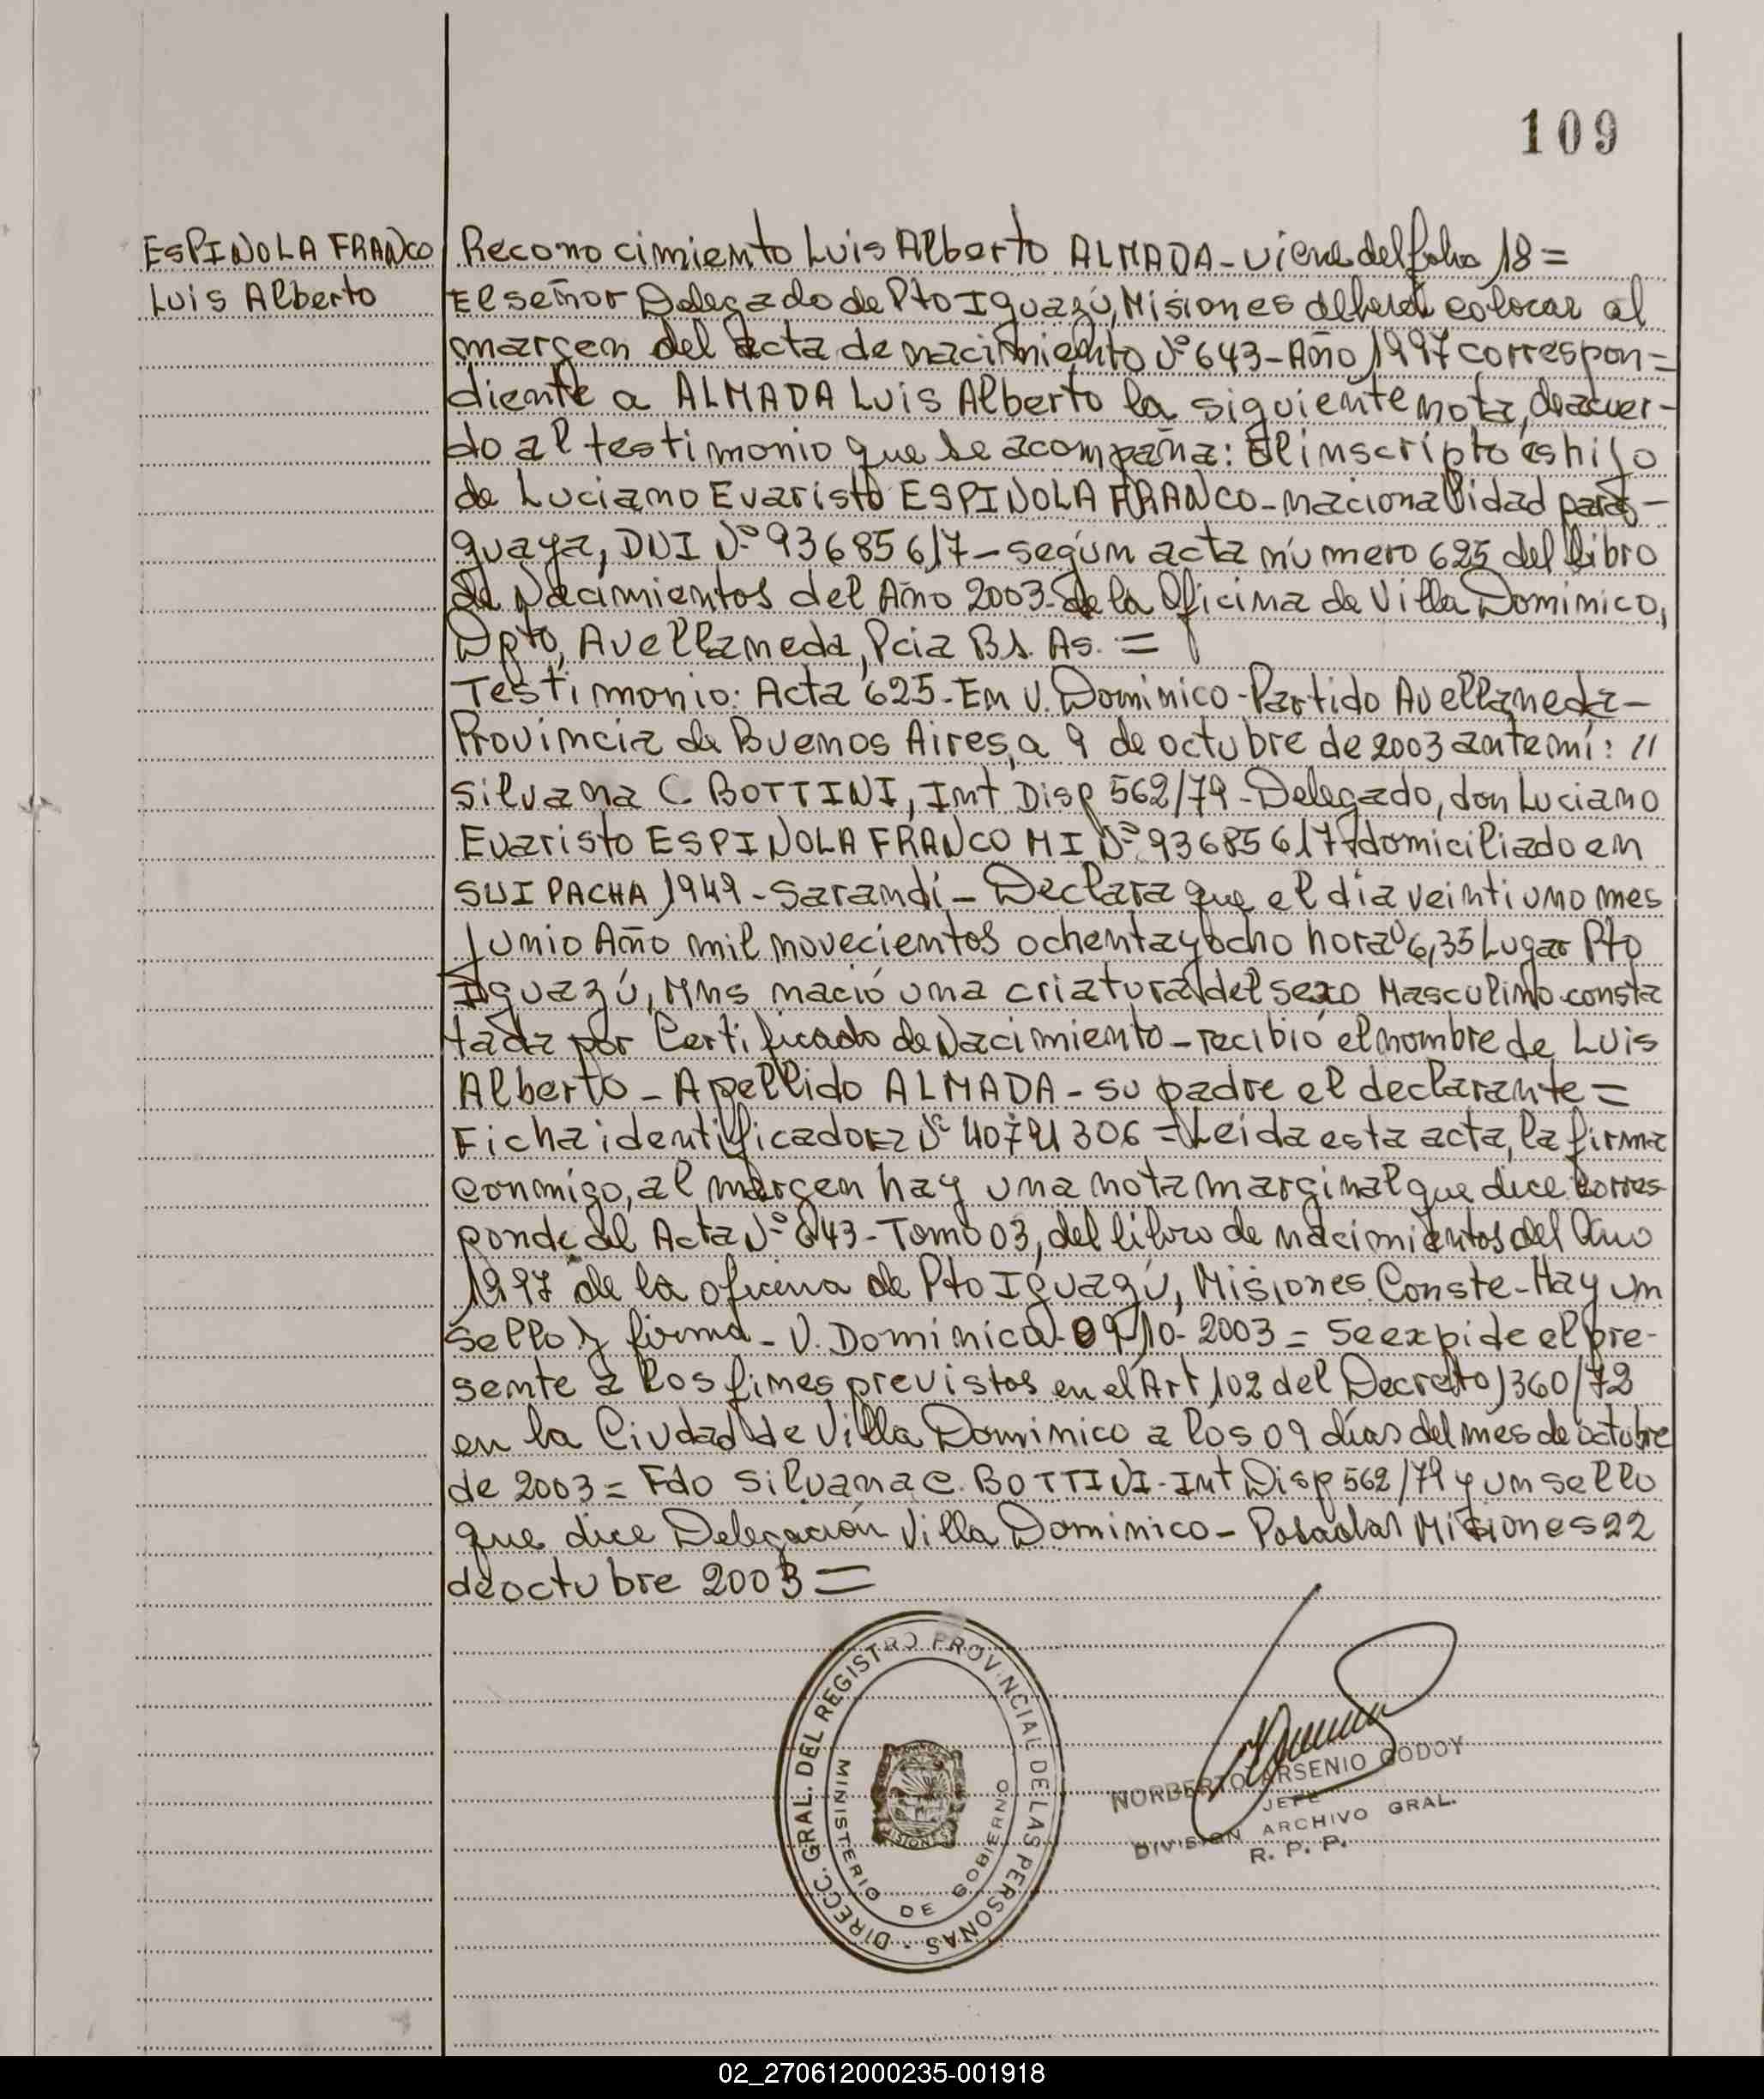 109
ESPINOLA FRANCO
Luis Alberto
Reconocimiento Luis Alberto ALMADA - viene del folio 18 =
El señor Delegado de Pto Iguazú, Misiones deberá colocar al
margen del acta de nacimiento Nº 643 - Año 1997 correspon=
diente a ALMADA Luis Alberto la siguiente nota, de acuer-
do al testimonio que se acompaña: El inscripto es hijo
de Luciano Evaristo ESPINOLA FRANCO - nacionalidad para-
guaya, DNI Nº 93685617 - según acta número 625 del libro
de Nacimientos del Año 2003 - de la Oficina de Villa Dominico,
Dpto, Avellaneda, Pcia Bs. As. =
Testimonio: Acta 625 - En V. Dominico - Partido Avellaneda -
Provincia de Buenos Aires, a 9 de octubre de 2003 ante mí: //
Silvana C. BOTTINI, Int Disp 562/79 - Delegado, don Luciano
Evaristo ESPINOLA FRANCO MI Nº 93685617 domiciliado en
SUIPACHA 1949 - Sarandí - Declara que el día veintiuno mes
Junio Año mil novecientos ochenta y ocho hora 6,35 Lugar Pto
Iguazú, Mns nació una criatura del sexo Masculino consta
tada por Certificado de Nacimiento - recibió el nombre de Luis
Alberto - Apellido ALMADA - su padre el declarante =
Ficha identificadora Nº 40791306 = Leida esta acta, la firma
conmigo, al margen hay una nota marginal que dice Corres
ponde al Acta Nº 643 - Tomo 03, del libro de nacimientos del Año
1997 de la oficina de Pto Iguazú, Misiones. Conste - Hay un
sello y firma - V. Dominico - 09-10-2003 = Se expide el pre-
sente a los fines previstos en el Art 102 del Decreto 1360/72
en la Ciudad de Villa Dominico a los 09 días del mes de octubre
de 2003 = Fdo Silvana C. BOTTINI - Int Disp 562/79 y un sello
que dice Delegación Villa Dominico - Posadas Misiones 22
de octubre 2003 =
DIRECC. GRAL. DEL REGISTRO PROVINCIAL DE LAS PERSONAS -
MINISTERIO DE GOBIERNO
MISIONES
NORBERTO ARSENIO GODOY
JEFE
DIVISION ARCHIVO GRAL.
R. P. P.
02_270612000235-001918